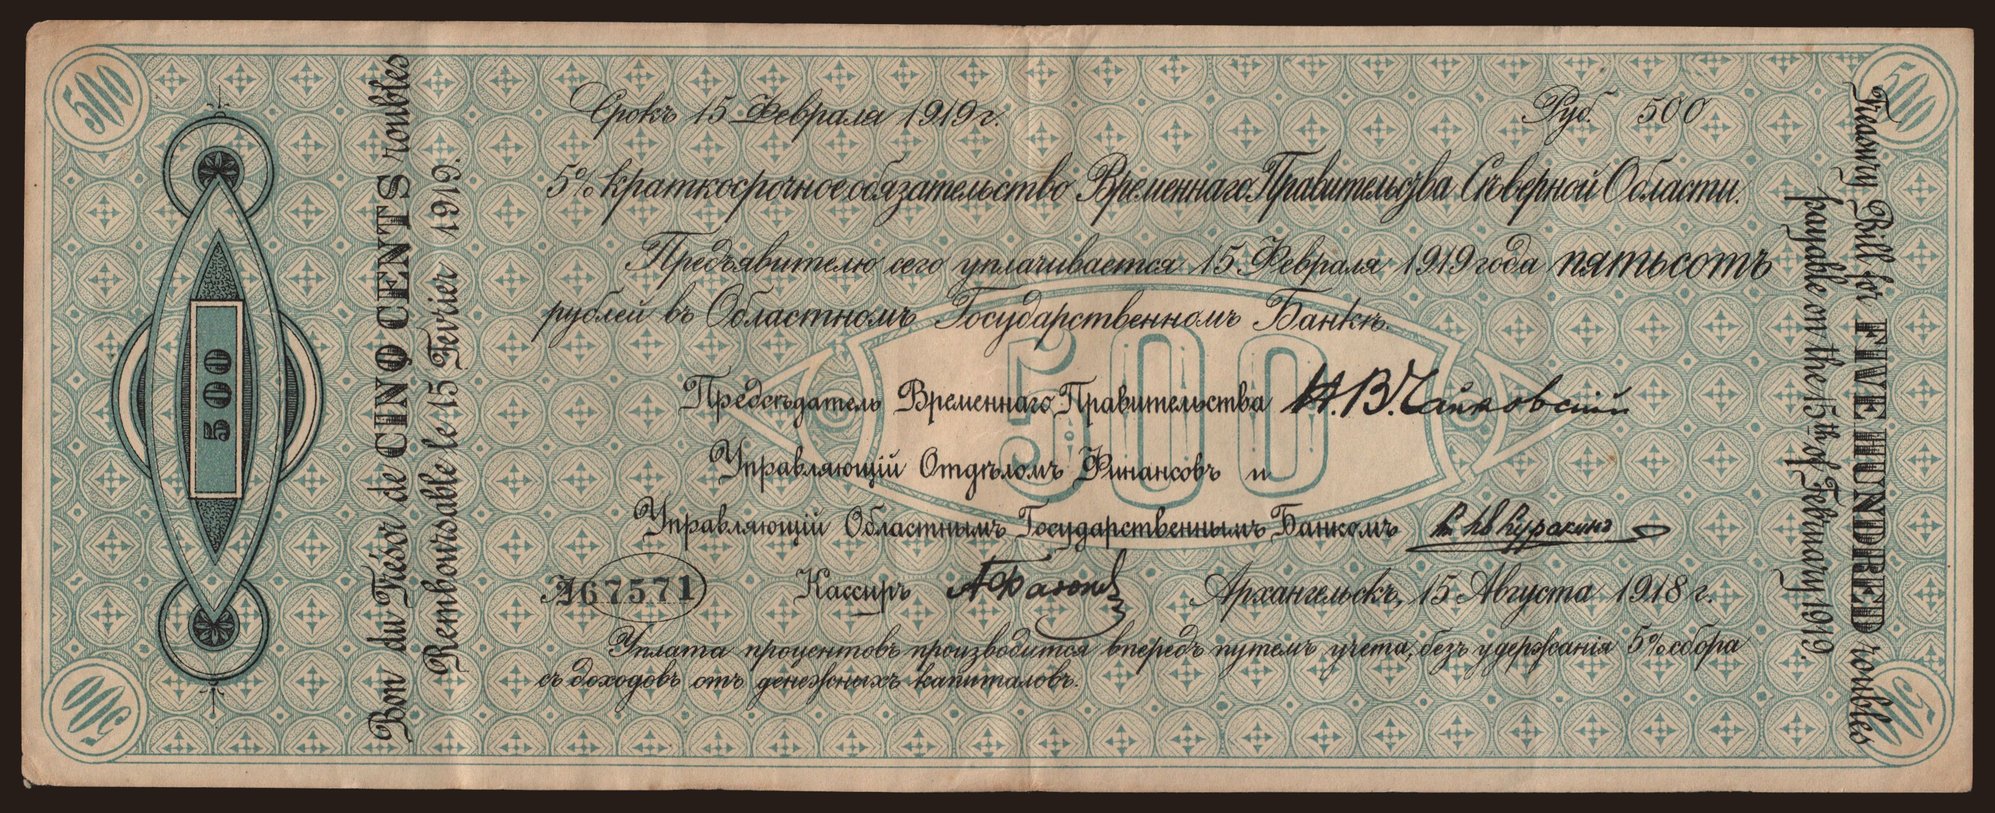 500
500
Bon du Trésor de CINQ CENTS roubles
Remboursable le 15 Fevrier 1919.
Срокъ 15 Февраля 1919 г.
Руб. 500
5% краткосрочное обязательство Временнаго Правительства Сѣверной Области.
Предъявителю сего уплачивается 15 Февраля 1919 года пятьсотъ
рублей въ Областномъ Государственномъ Банкѣ.
500
500
Предсѣдатель Временнаго Правительства Н.В.Чайковскій
Управляющій Отдѣломъ Финансовъ и
Управляющій Областнымъ Государственнымъ Банкомъ
А67571
Кассиръ
Архангельскъ, 15 Августа 1918 г.
Уплата процентовъ производится впередъ путемъ учета, безъ удержанія 5% сбора
съ доходовъ отъ денежныхъ капиталовъ.
Treasury Bill for FIVE HUNDRED roubles
payable on the 15th of February 1919.
500
500